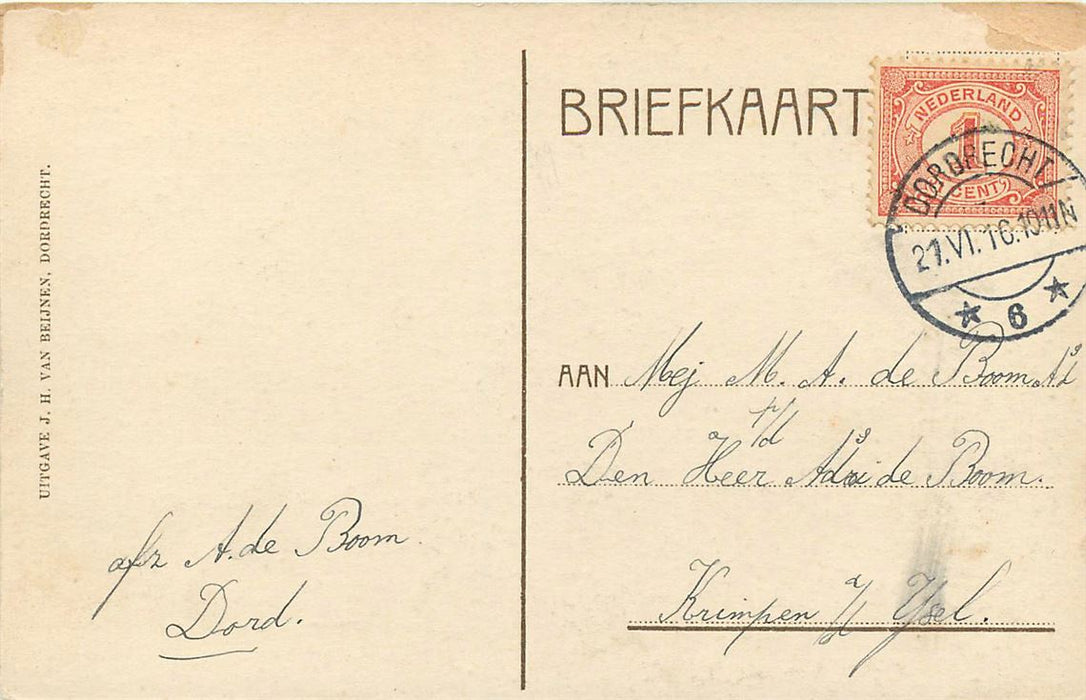 UITGAVE J. H. VAN BEIJNEN, DORDRECHT.
afz A. de Boom
Dord.
BRIEFKAART
NEDERLAND
1
CENT
DORDRECHT
21.VI.16.10-11N
6
AAN Mej M. A. de Boom Ad
p/d
Den Heer Adr de Boom.
Krimpen a/d Ysel.